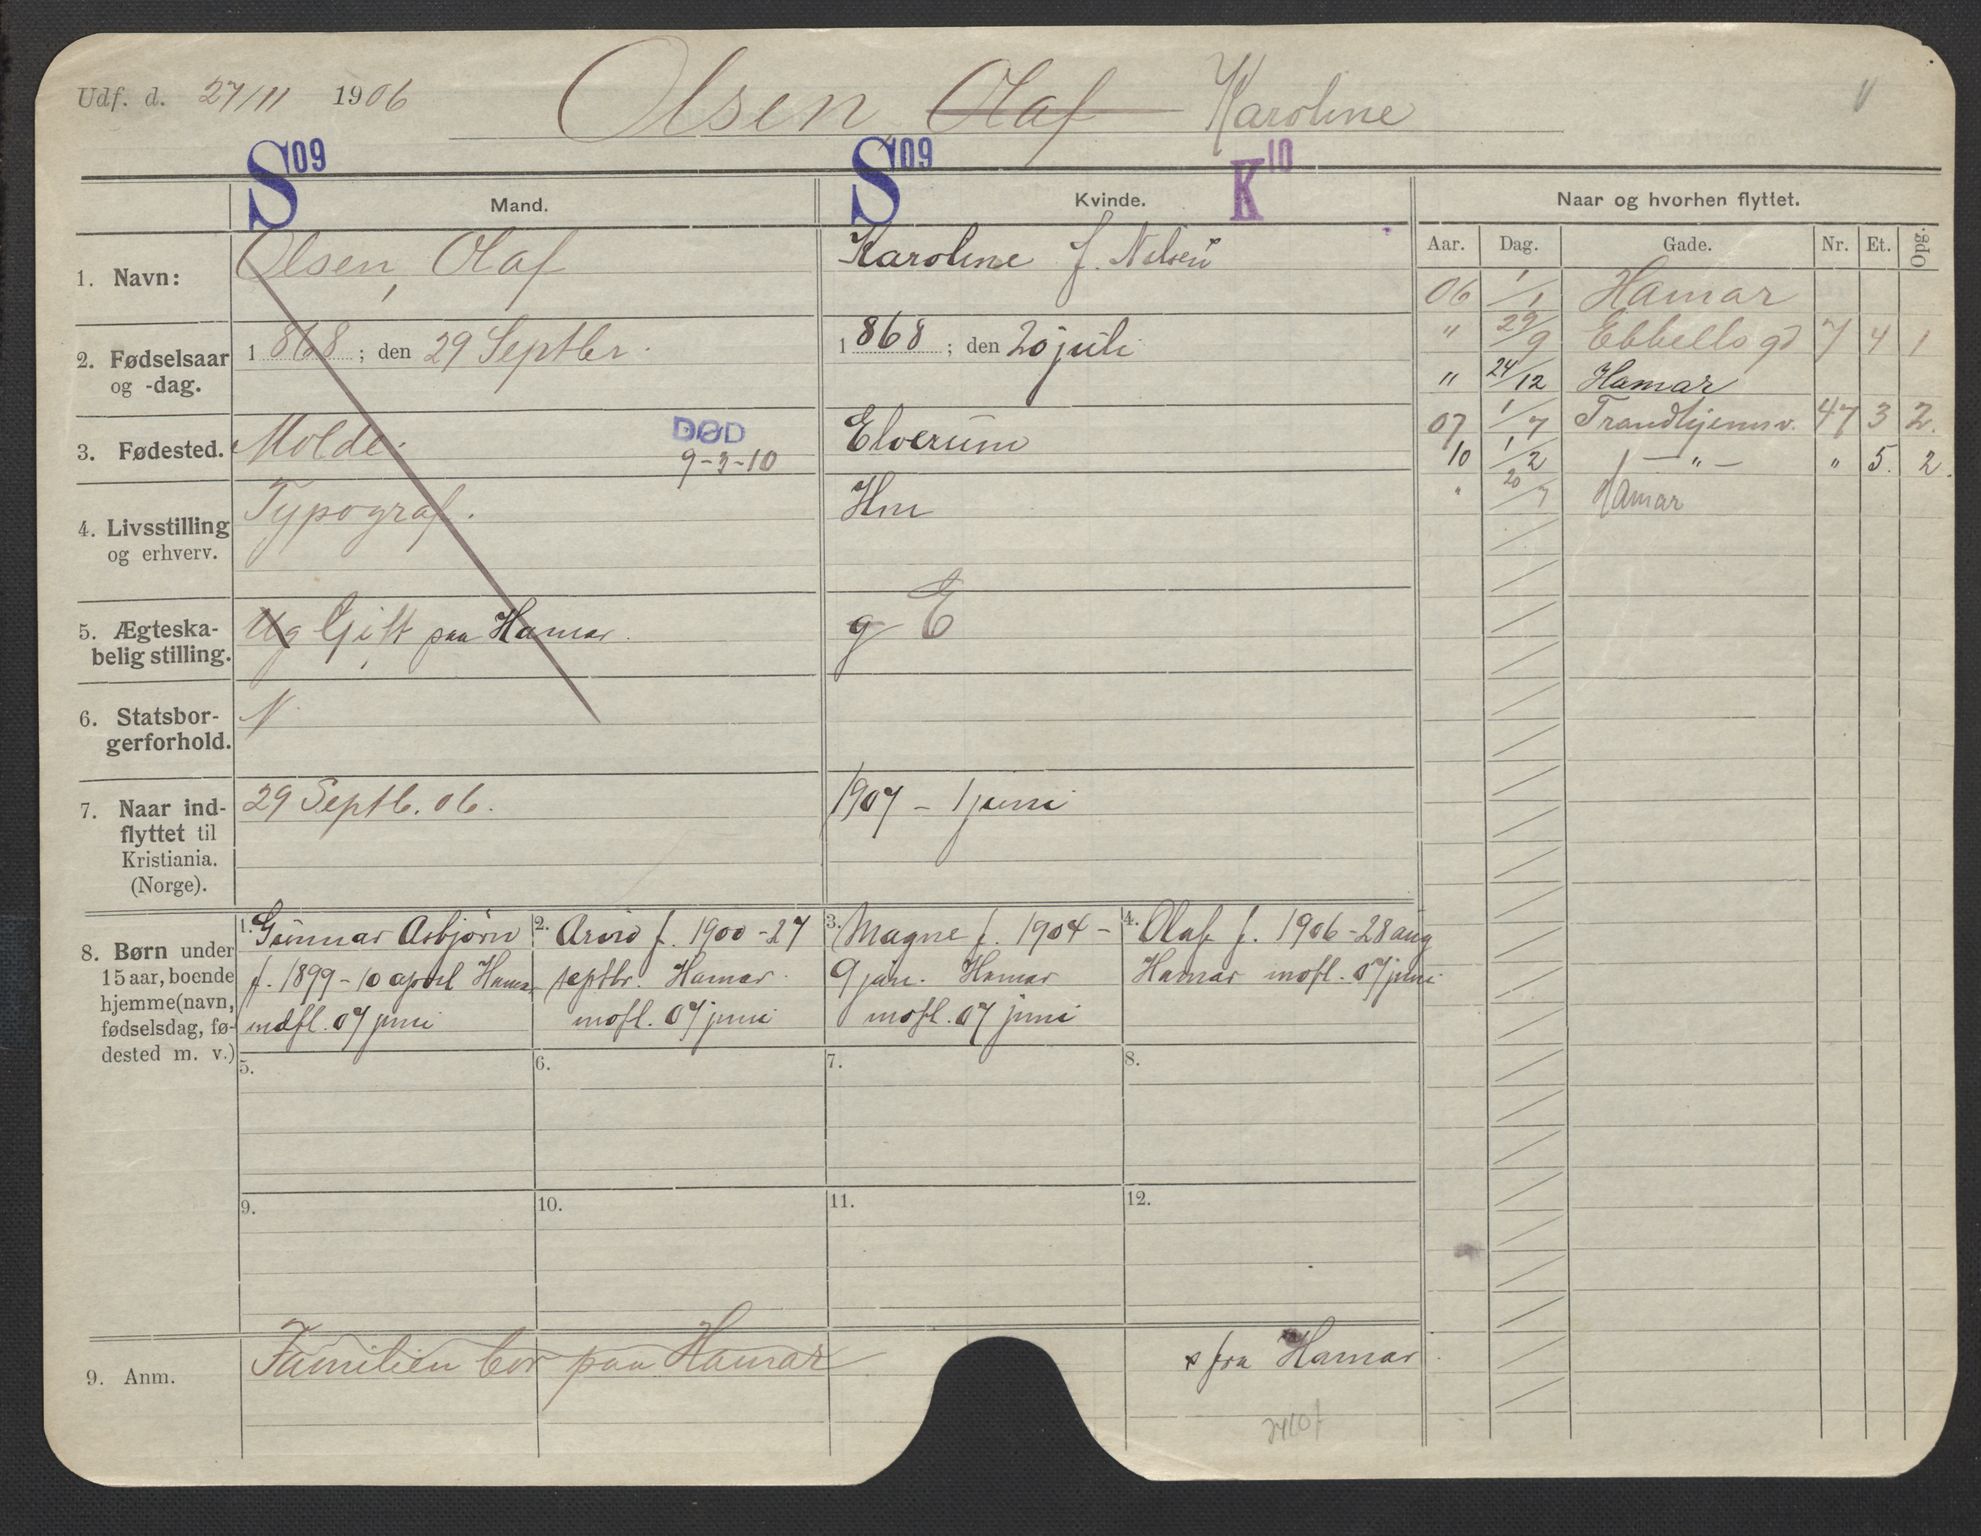 Udf. d. 27/11 1906 Olsen Olaf Karoline
S 09 S 09 K 10
Mand. Kvinde. Naar og hvorhen flyttet.
Aar. Dag. Gade. Nr. Et. Opg.
1. Navn: Olsen, Olaf Karoline f. Nilsen
2. Fødselsaar og -dag. 1868; den 29 Septbr. 1868; den 20 juli
3. Fødested. Molde. DØD Elverum
9-3-10
4. Livsstilling og erhverv. Typograf. Hm
5. Ægteska-
belig stilling. Ug Gift paa Hamar. g E
6. Statsbor-
gerforhold. N.
7. Naar ind-
flyttet til
Kristiania.
(Norge). 29 Septb. 06. 1907 - 1 juni
06 1/1 Hamar
" 29/9 Ebbells gd 7 4 1
" 24/12 Hamar
07 1/7 Trondhjemsv. 47 3 2.
10 1/2 — " — " 5. 2.
" 20/7 Hamar
8. Børn under
15 aar, boende
hjemme (navn,
fødselsdag, fø-
dested m. v.)
1. Gunnar Asbjørn
f. 1899 - 10 april Hamar
indfl. 07 juni
2. Arvid f. 1900 - 27
septbr. Hamar.
indfl. 07 juni
3. Magne f. 1904 -
9 jan. Hamar
indfl. 07 juni
4. Olaf f. 1906 - 28 aug
Hamar indfl. 07 juni
5. 6. 7. 8.
9. 10. 11. 12.
9. Anm. Familien bor paa Hamar x fra Hamar.